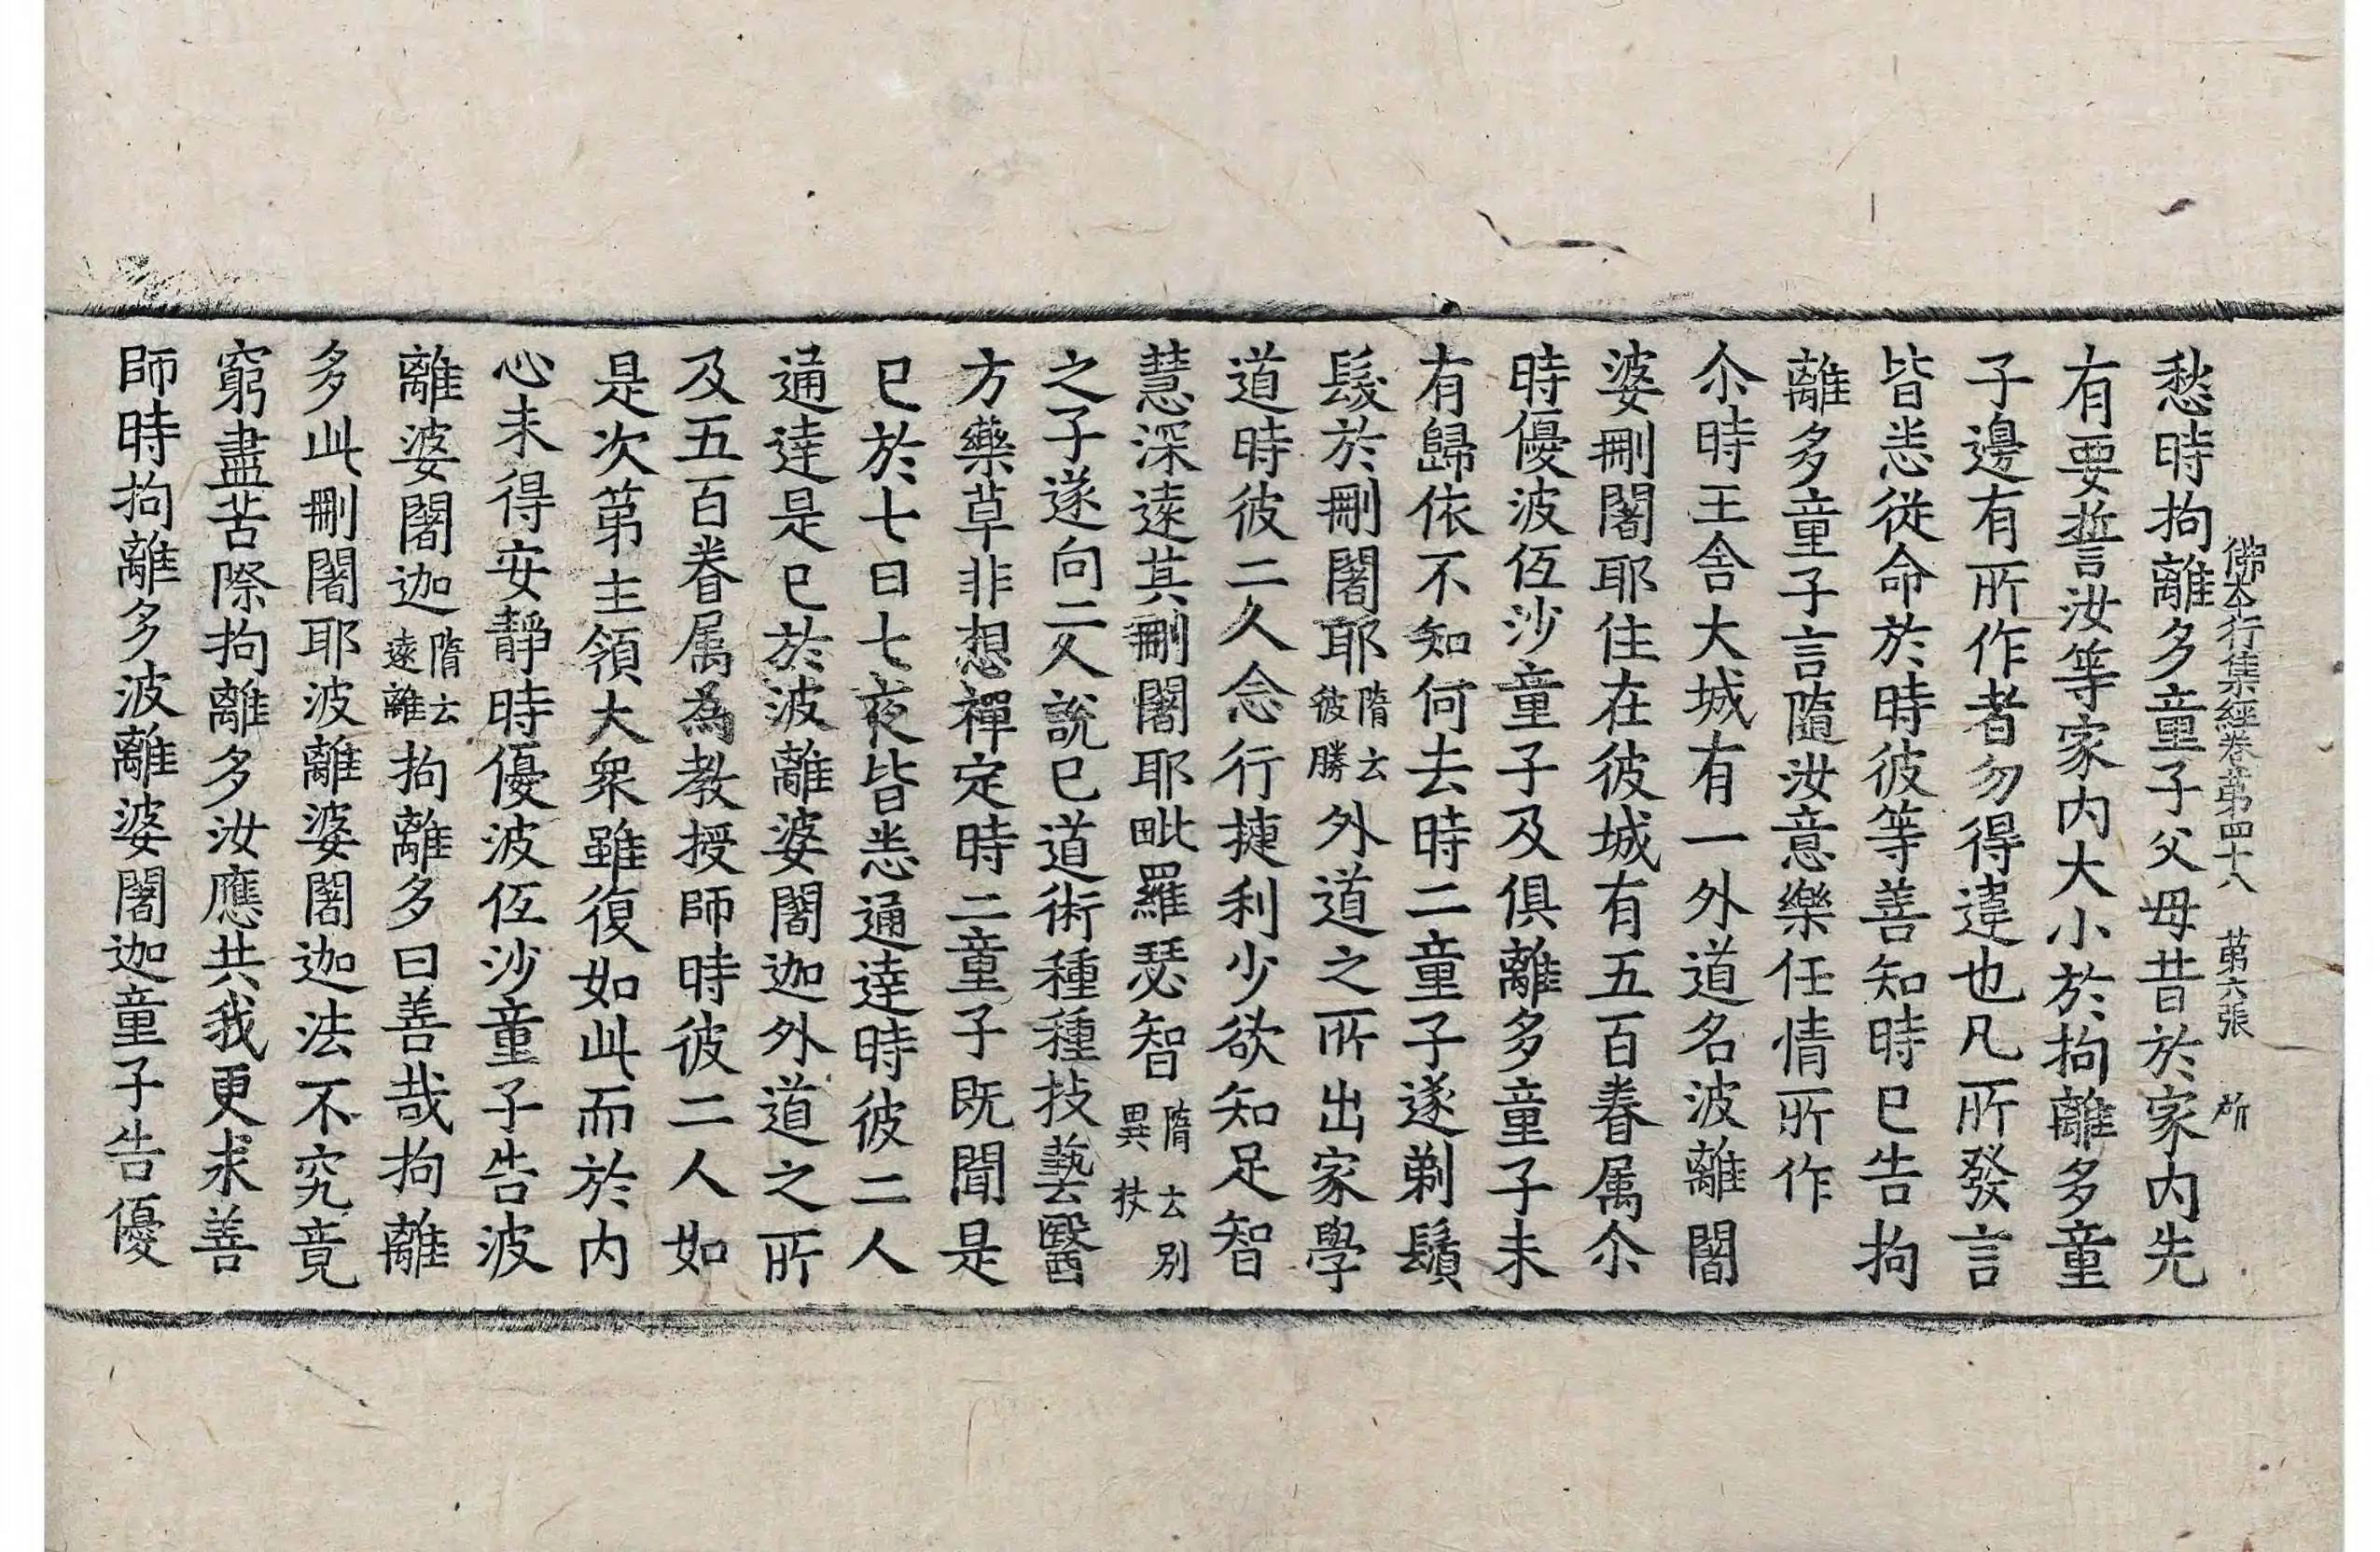 佛本行集經卷第四十八 第六張 所
愁時拘離多童子父母昔於家内先
有要誓汝等家内大小於拘離多童
子邊有所作者勿得違也凡所發言
皆悉從命於時彼等善知時已告拘
離多童子言隨汝意樂任情所作
尒時王舍大城有一外道名波離闍
婆刪闍耶住在彼城有五百眷属尒
時優波伍沙童子及俱離多童子未
有歸依不知何去時二童子遂剃鬚
髮於刪闍耶隋云彼勝外道之所出家學
道時彼二久念行捷利少欲知足智
慧深遠其刪闍耶毗羅瑟智隋云別異扙
之子遂向二久說已道術種種技藝醫
方藥草非想禪定時二童子既聞是
已於七日七夜皆悉通達時彼二人
通達是已於波離婆闍迦外道之所
及五百眷属為教授師時彼二人如
是次第主領大衆雖復如此而於内
心未得安靜時優波伍沙童子告波
離婆闍迦隋云遠離拘離多曰善哉拘離
多此刪闍耶波離婆闍迦法不究竟
窮盡苦際拘離多汝應共我更求善
師時拘離多波離婆闍迦童子告優